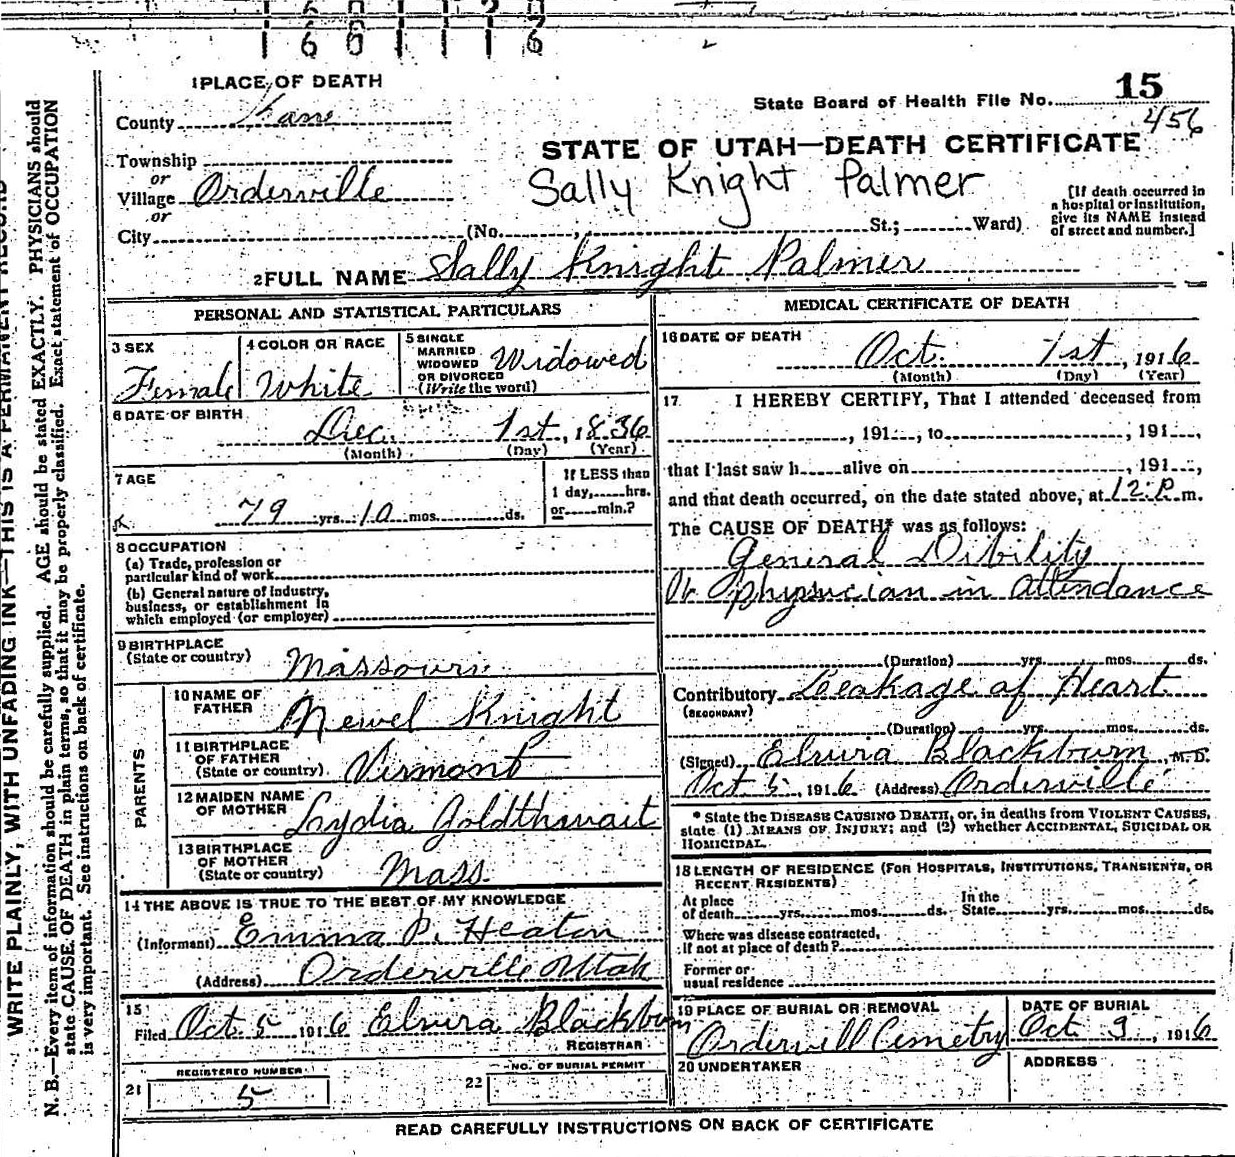 1 6 0 1 1 2 0
1 6 6 1 1 1 6
1 PLACE OF DEATH
County Kane
Township
or
Village Orderville
or
City (No. , St.; Ward)
State Board of Health File No. 15
456
STATE OF UTAH—DEATH CERTIFICATE
Sally Knight Palmer
[If death occurred in
a hospital or institution,
give its NAME instead
of street and number.]
2 FULL NAME Sally Knight Palmer
PERSONAL AND STATISTICAL PARTICULARS
3 SEX
Female
4 COLOR OR RACE
White
5 SINGLE
MARRIED
WIDOWED
OR DIVORCED
(Write the word)
Widowed
6 DATE OF BIRTH
Dec. 1st, 1836
(Month) (Day) (Year)
7 AGE
79 yrs. 10 mos. ds.
If LESS than
1 day, hrs.
or min.?
8 OCCUPATION
(a) Trade, profession or
particular kind of work
(b) General nature of industry,
business, or establishment in
which employed (or employer)
9 BIRTHPLACE
(State or country) Massouri
PARENTS
10 NAME OF
FATHER Newel Knight
11 BIRTHPLACE
OF FATHER
(State or country) Virmont
12 MAIDEN NAME
OF MOTHER Lydia Goldthwait
13 BIRTHPLACE
OF MOTHER
(State or country) Mass.
14 THE ABOVE IS TRUE TO THE BEST OF MY KNOWLEDGE
(Informant) Emma P. Heaton
(Address) Orderville Utah
15
Filed Oct. 5 1916 Elvira Blackburn
REGISTRAR
REGISTERED NUMBER
21 5
NO. OF BURIAL PERMIT
22
MEDICAL CERTIFICATE OF DEATH
16 DATE OF DEATH
Oct. 1st, 1916
(Month) (Day) (Year)
17 I HEREBY CERTIFY, That I attended deceased from
, 191 , to , 191 ,
that I last saw h alive on , 191 ,
and that death occurred, on the date stated above, at 12 P m.
The CAUSE OF DEATH* was as follows:
General Dibility
physician in attendance
(Duration) yrs. mos. ds.
Contributory Leakage of Heart
(SECONDARY)
(Duration) yrs. mos. ds.
(Signed) Elvira Blackburn M.D.
Oct 5, 1916 (Address) Orderville
* State the DISEASE CAUSING DEATH, or, in deaths from VIOLENT CAUSES,
state (1) MEANS OF INJURY; and (2) whether ACCIDENTAL, SUICIDAL OR
HOMICIDAL.
18 LENGTH OF RESIDENCE (FOR HOSPITALS, INSTITUTIONS, TRANSIENTS, OR
RECENT RESIDENTS)
At place
of death yrs. mos. ds.
In the
State yrs. mos. ds.
Where was disease contracted,
if not at place of death?
Former or
usual residence
19 PLACE OF BURIAL OR REMOVAL
Ordervill Cemetry
DATE OF BURIAL
Oct 3, 1916
20 UNDERTAKER
ADDRESS
READ CAREFULLY INSTRUCTIONS ON BACK OF CERTIFICATE
WRITE PLAINLY, WITH UNFADING INK—THIS IS A PERMANENT RECORD
N. B.—Every item of information should be carefully supplied. AGE should be stated EXACTLY. PHYSICIANS should
state CAUSE OF DEATH in plain terms, so that it may be properly classified. Exact statement of OCCUPATION
is very important. See instructions on back of certificate.